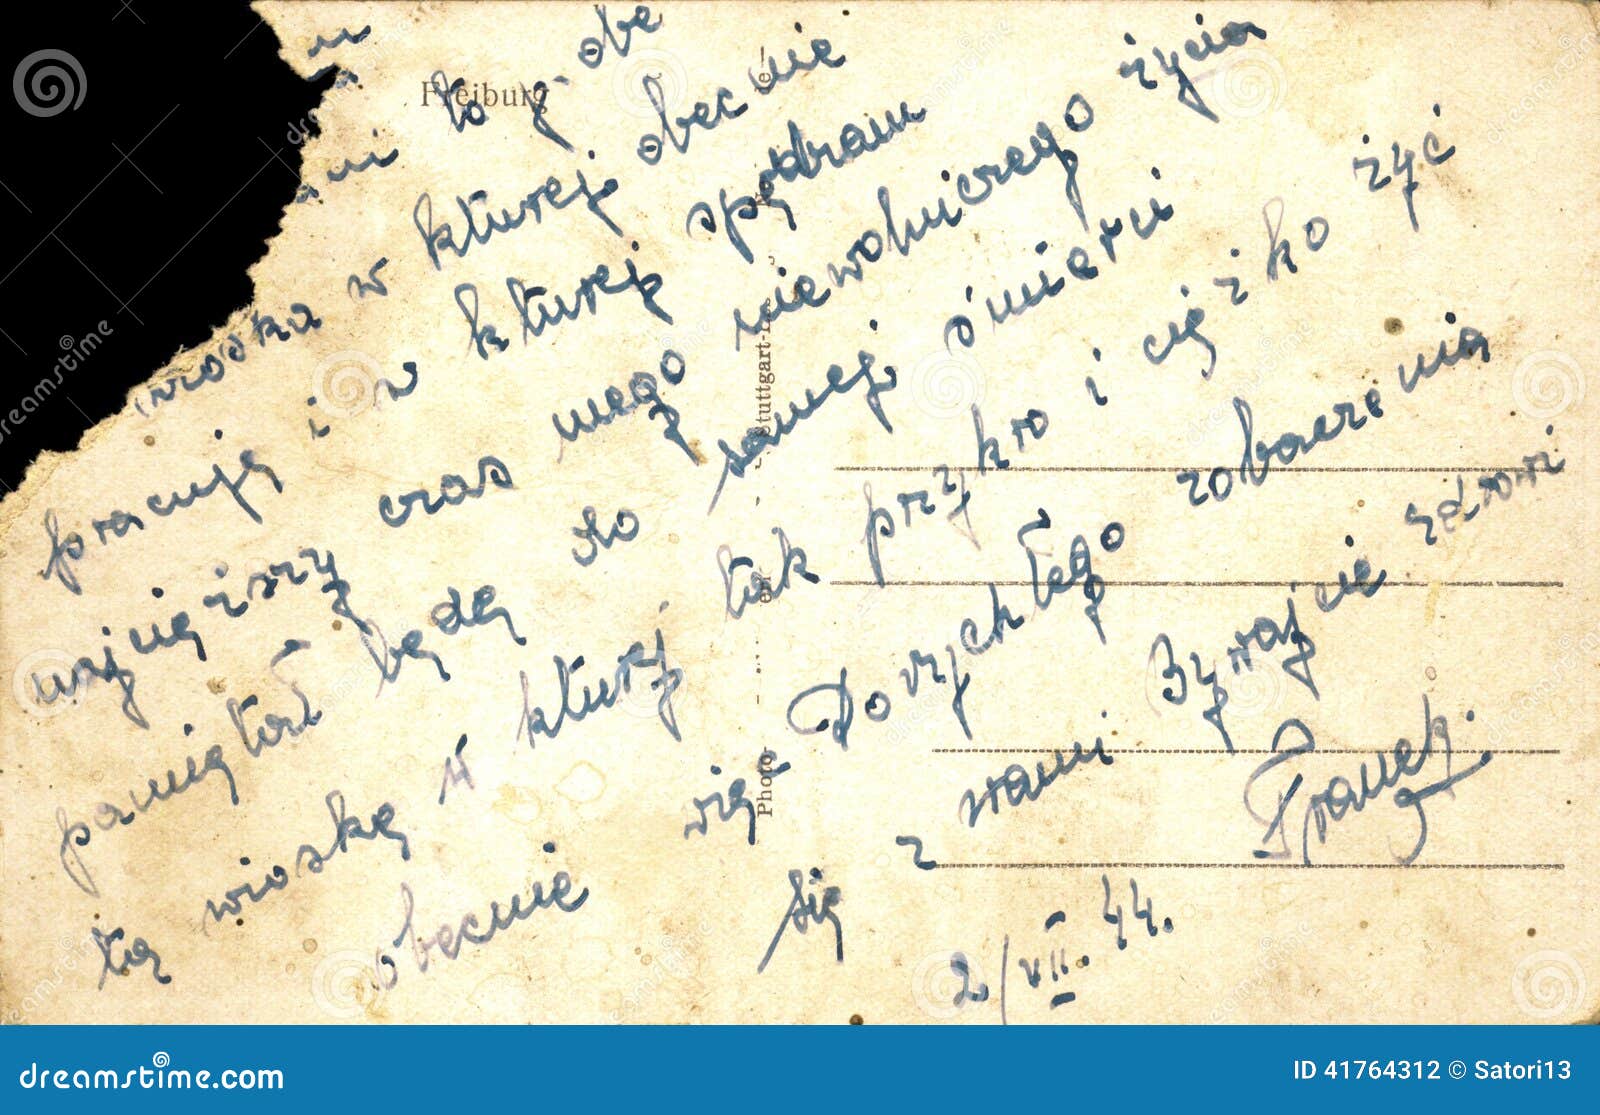 Freiburg
to j. obe
wioska w kturej obecnie
pracuję i w kturej spędzam
najcięższy czas mego niewolniczego życia
pamiętał będę do samej śmierci
tą wioskę w kturej tak przykro i ciężko żyć
obecnie więc Do rychłego zobaczenia
się z wami Bywajcie zdrowi
Franek.
2/VII.44.
Photo
dreamstime.com
ID 41764312 © Satori13